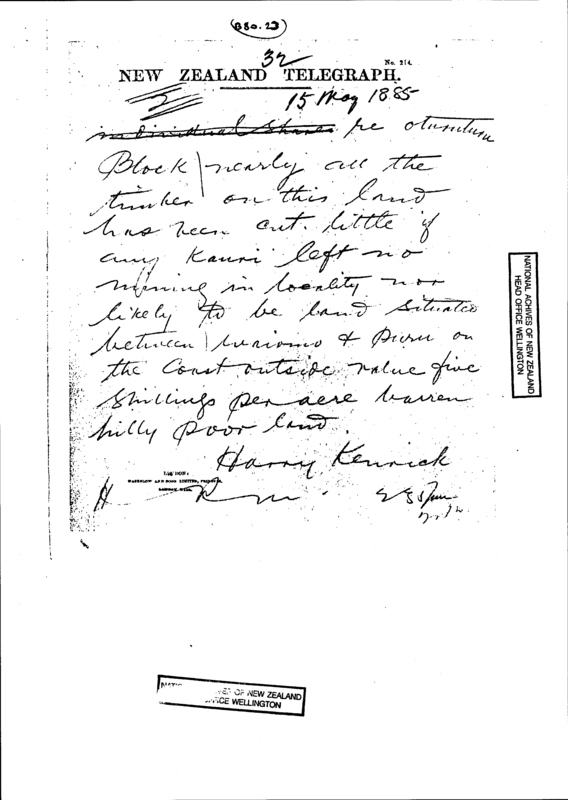 B80.23
32
No. 214.
NEW ZEALAND TELEGRAPH.
15 May 1885
individual shares re otumuturu
Block nearly all the
timber on this land
has been cut. little if
any Kauri left no
mining in locality nor
likely to be land situated
between & Puru on
the Coast outside value five
shillings per acre barren
hilly poor land.
Harry Kenrick
LONDON:
WATERLOW AND SONS LIMITED, PRINTERS,
LONDON WALL.
H
NATIONAL ACHIVES OF NEW ZEALAND
HEAD OFFICE WELLINGTON
OF NEW ZEALAND
WELLINGTON